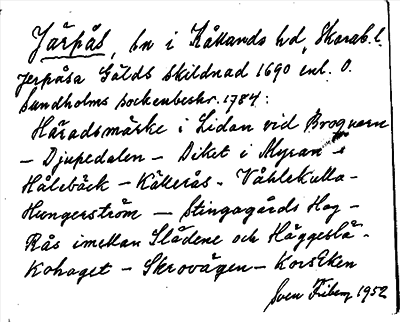 Järpås, sn i Kållands hd, Skarab. l.
Jerpåsa Gälds skildnad 1690 enl. O.
Sundholms sockenbeskr. 1784:
Häradsmärke i Lidan vid Broqvarn
- Djupedalen - Diket i Myran -
Hålebäck - Källerås - Våhlekulla -
Hungerström - Stingagårds Hag -
Rås imellan Slädene och Häggeslä -
Kohaget - Skrovägen - KorsEken
Sven Friberg 1952